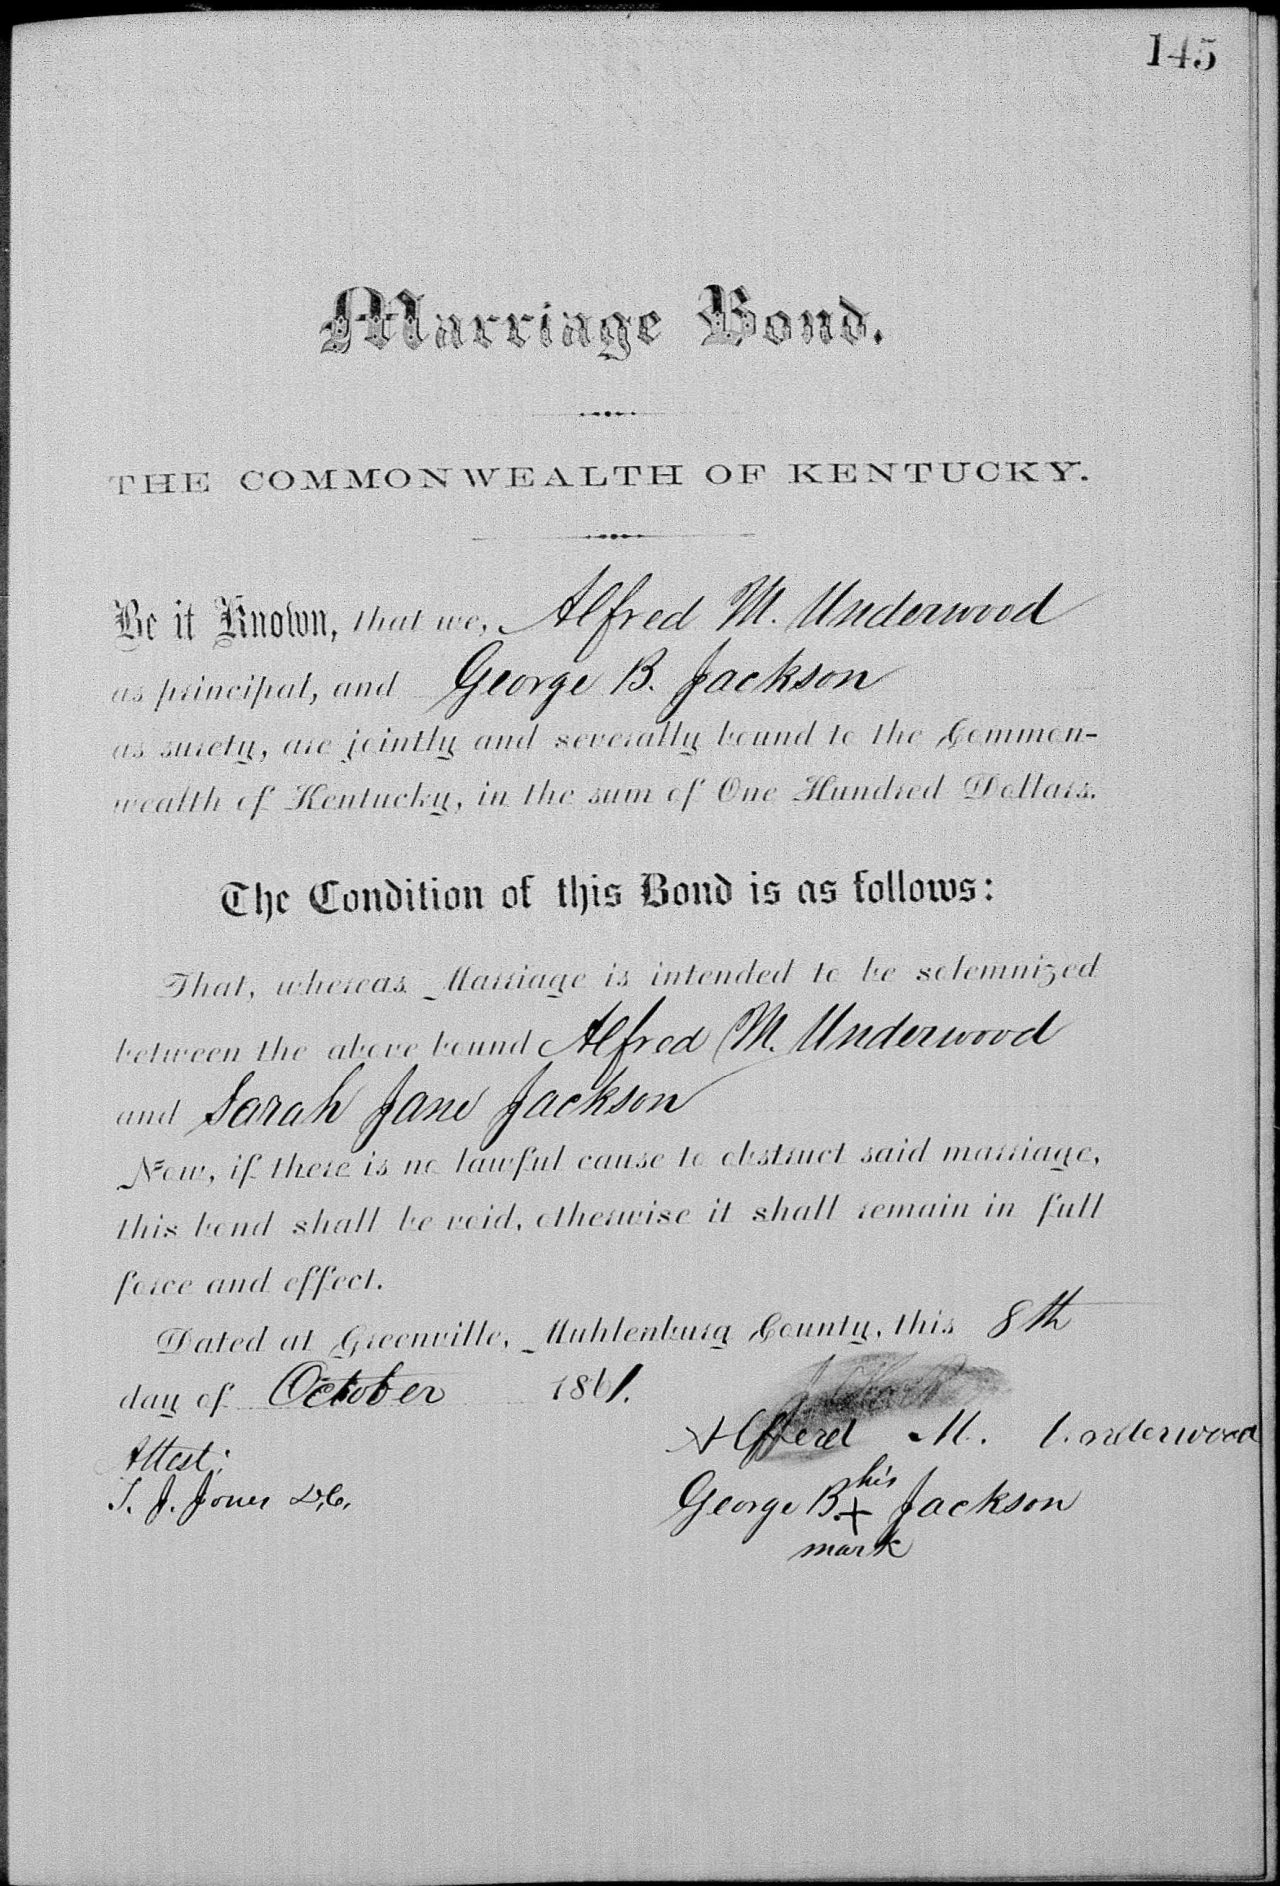 145
Marriage Bond.
THE COMMONWEALTH OF KENTUCKY.
Be it Known, that we, Alfred M. Underwood
as principal, and George B. Jackson
as surety, are jointly and severally bound to the Common-
wealth of Kentucky, in the sum of One Hundred Dollars.
The Condition of this Bond is as follows:
That, whereas Marriage is intended to be solemnized
between the above bound Alfred M. Underwood
and Sarah Jane Jackson
Now, if there is no lawful cause to obstruct said marriage,
this bond shall be void, otherwise it shall remain in full
force and effect.
Dated at Greenville, Muhlenburg County, this 8th
day of October 1861.
Alfferd M. Underwood
Attest:
T. J. Jones D.C.
his
George B. + Jackson
mark